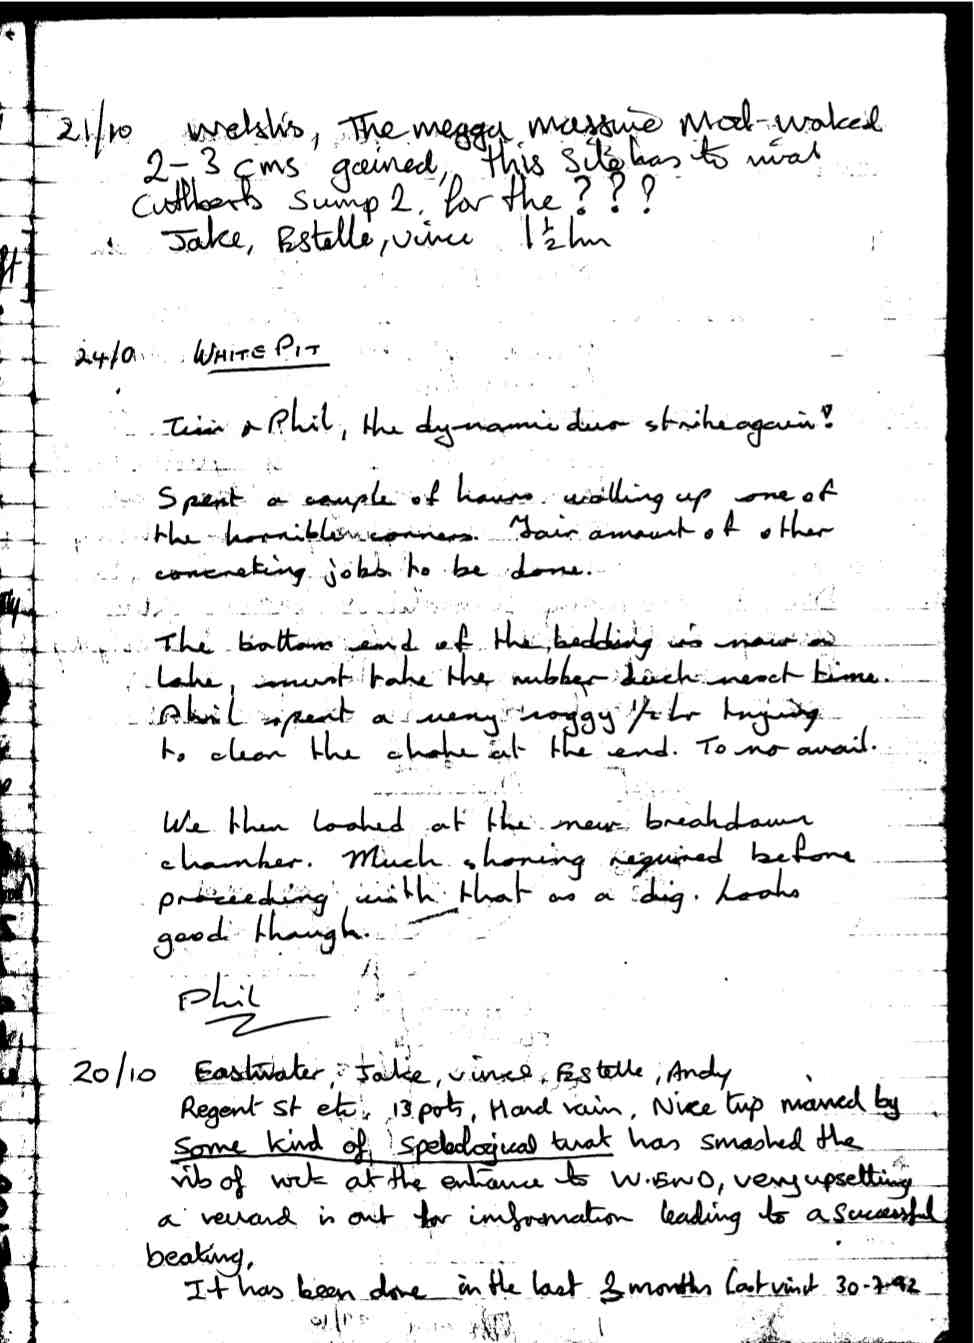 21/10 Welshs, The megga massive Mod-waked
2-3 cms gained, this Site has to rival
Cuthberts Sump 2. for the ? ? ?
Jake, Estelle, Vince 1½ hrs
24/0 WHITE PIT
Tim & Phil, the dynamic duo strike again!
Spent a couple of hours walling up one of
the horrible corners. Fair amount of other
concreting jobs to be done.
The bottom end of the bedding is now a
lake, must take the rubber duck next time.
Phil spent a very soggy 1/2 hr trying
to clear the choke at the end. To no avail.
We then looked at the new breakdown
chamber. Much shoring required before
proceeding with that as a dig. Looks
good though.
Phil
20/10 Eastwater, Jake, Vince, Estelle, Andy
Regent St etc. 13 pots, Hard rain, Nice trip marred by
some kind of speleological twat has smashed the
rib of rock at the entrance to W.END, very upsetting
a reward is out for imformation leading to a successful
beating.
It has been done in the last 3 months last visit 30-7-92